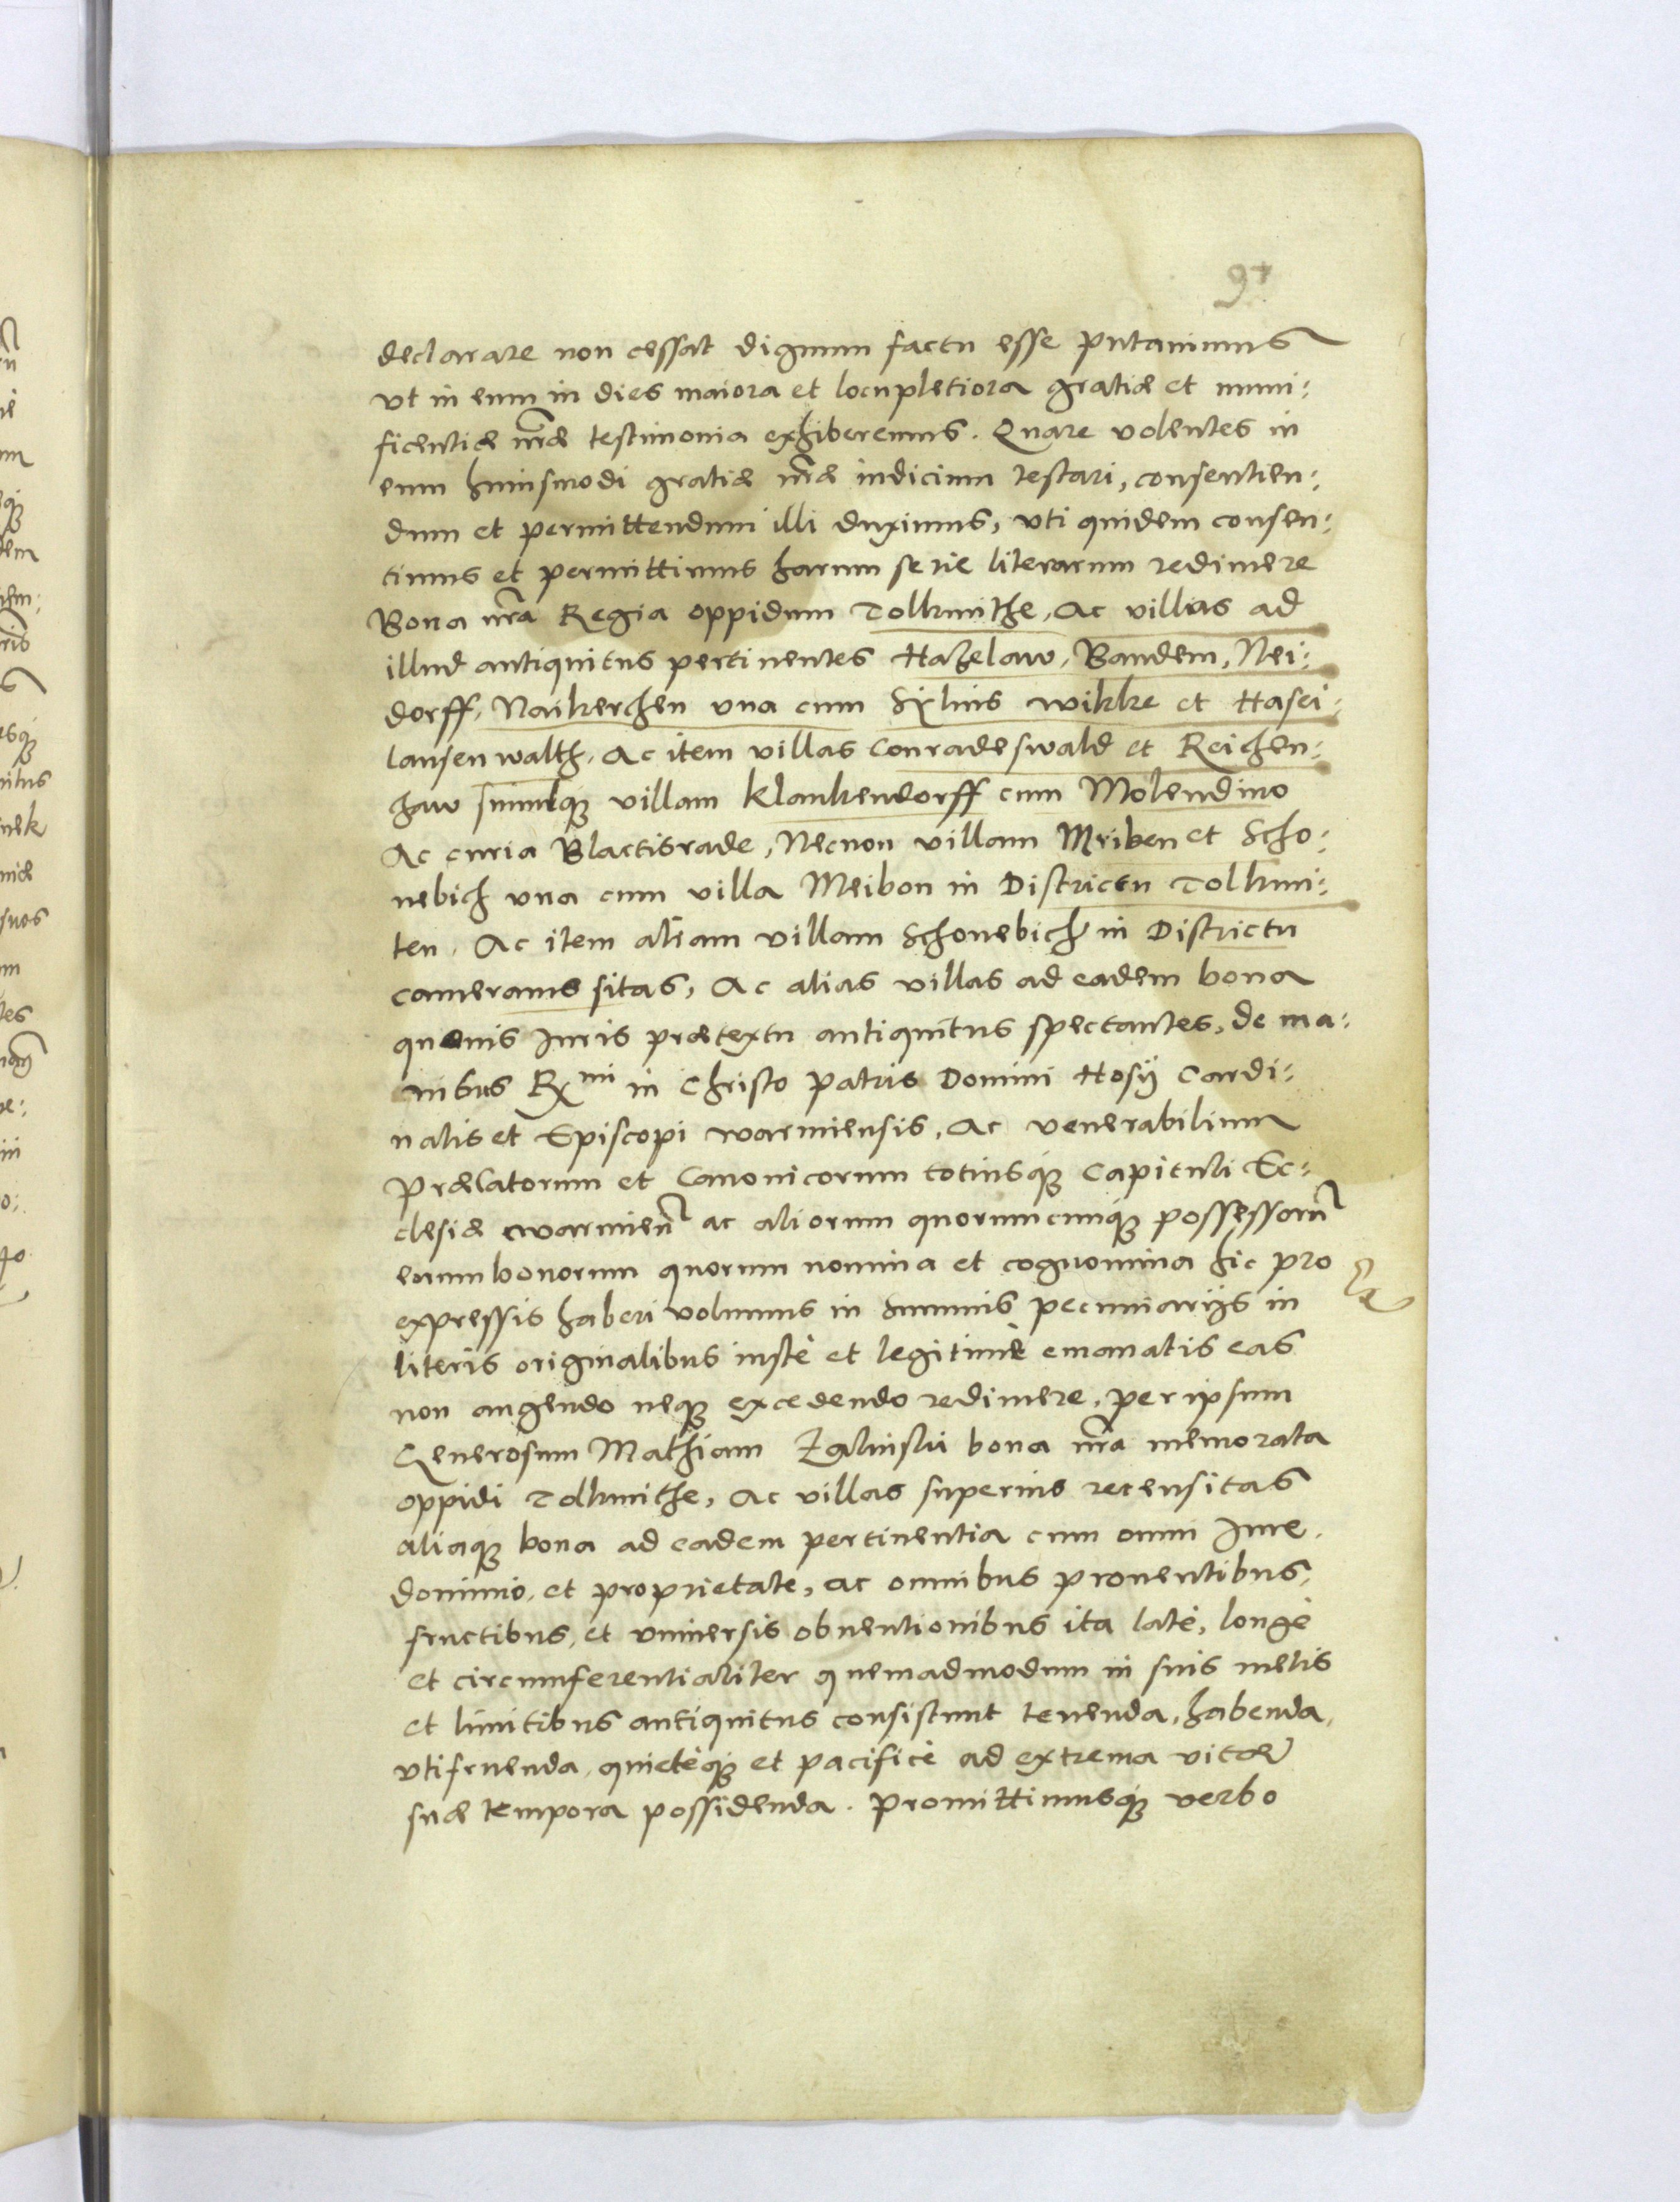 97
declarare non cessat dignum factu esse putauimus
vt in eum in dies maiora et locupletiora gratiæ et muni:
ficentiæ nr̃æ testimonia exhiberemus. Quare volentes in
eum huiusmodi gratiæ nr̃æ indicium testari, consentien:
dum et permittendum illi duximus, vti quidem consen:
timus et permittimus harum serie literarum redimere
Bona nr̃a Regia oppidum Tolkmithe, Ac villas ad
illud antiquitus pertinentes Hazelaw, Baudem, Nei:
dorff, Naikerchen vna cum Syluis wikke et Hasei:
lausen walth. Ac item villas Conradeswald et Reichen:
haw simulq̃ villam Klankendorff cum Molendino
Ac curia Blactisrade, Necnon villam Mriben et Scho:
nebich vna cum villa Meibon in Districtu Tolkmi:
ten. Ac item aliam villam Schonebich in Districtu
camerams sitas, Ac alias villas ad eadem bona
quouis Juris prætextu antiquitus spectantes, de ma:
nibus Rx̃mi in Christo patris Domini Hosij Cardi:
nalis et Episcopi warmiensis, Ac venerabilium
Prælatorum et Canonicorum totiusq́ Capituli Ec:
clesiæ warmieñ ac aliorum quorumcunq́ possessorũ
eorum bonorum quorum nomina et cognomina hic pro
expressis haberi volumus in summis pecuniarijs in
literis originalibus iustè et legitimè emanatis eas
non augendo neq́ excedendo redimere, per ipsum
Generosum Mathiam Zalinski bona nr̃a memorata
oppidi Tolkmithe, Ac villas superius recensitas
aliaq́ bona ad eadem pertinentia cum omni Jure.
dominio, et proprietate, ac omnibus prouentibus,
fructibus, et vniuersis obuentionibus ita latè, longè
et circumferentialiter quemadmodum in suis metis
et limitibus antiquitus consistunt tenenda, habenda,
vtifruenda, quietéq́ et pacificè ad extrema vitæ
suæ tempora possidenda. Promittimusq́ verbo